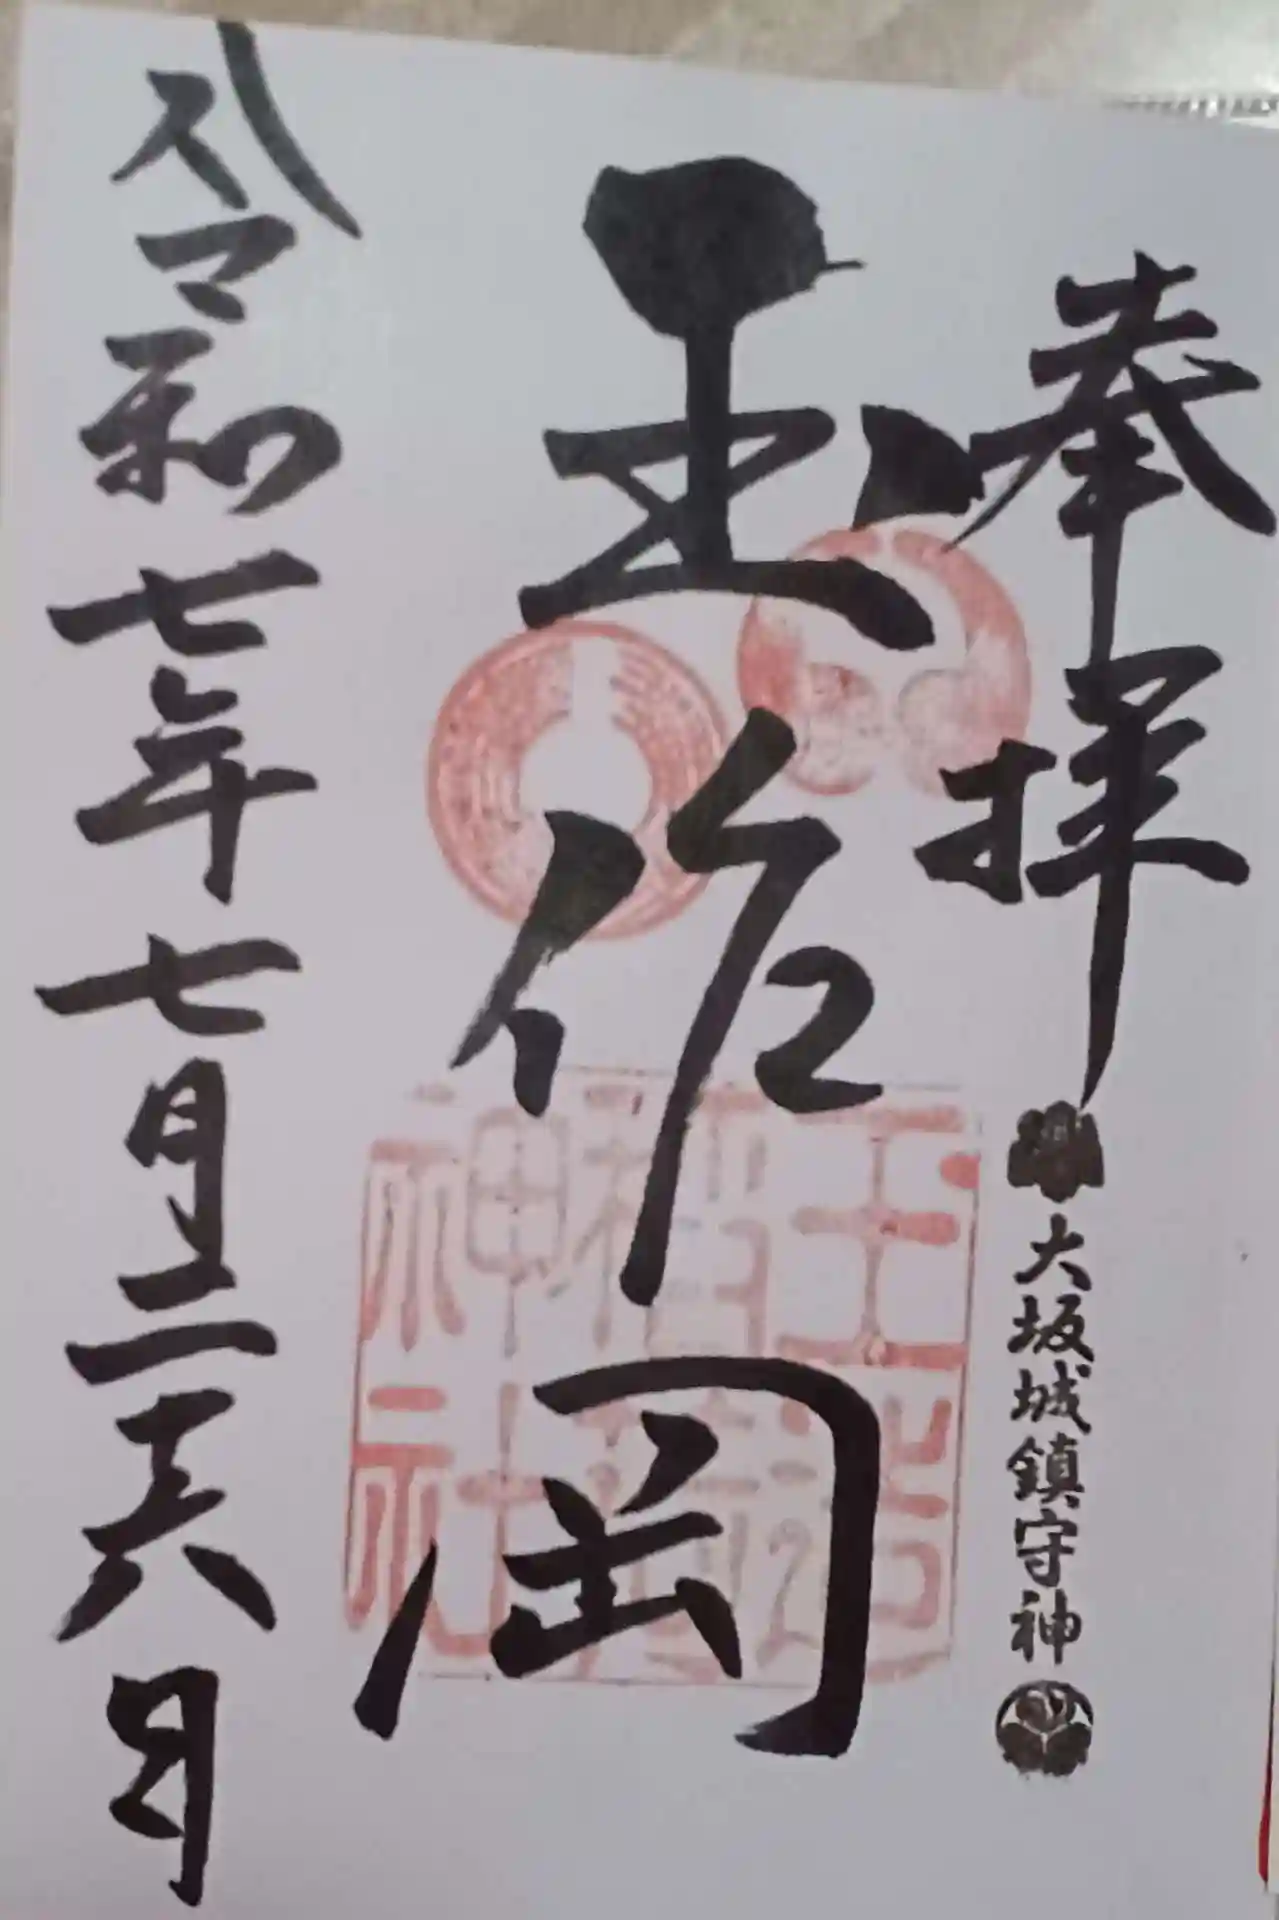 奉拝
大坂城鎮守神
玉作岡
玉造
稲荷
神社
令和七年七月二十六日